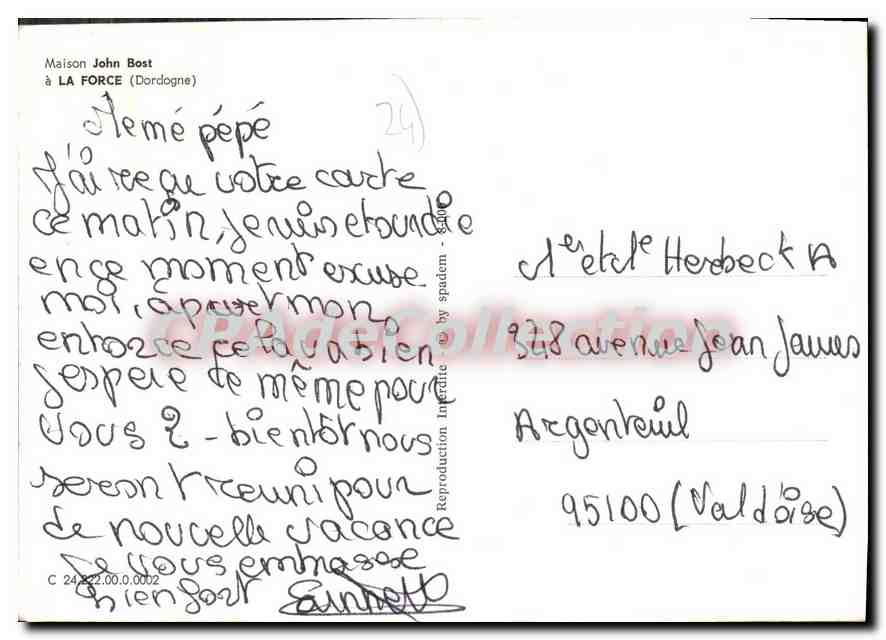 Maison John Bost
à LA FORCE (Dordogne)
24)
Memé pépé
J'ai reçu votre carte
ce matin, je suis etourdie
en ce moment excuse
moi, apart mon
entorce ce la va bien
j'espère de même pour
vous 2 - bientôt nous
seront reuni pour
de nouvelle vacance
Je vous embrasse
bien fort
C 24.222.00.0.0002
Reproduction Interdite - © by spadem -
CPAdeCollection
Mer et Me Herbeck A
328 avenue Jean Jaures
Argenteuil
95100 (Val d'oise)